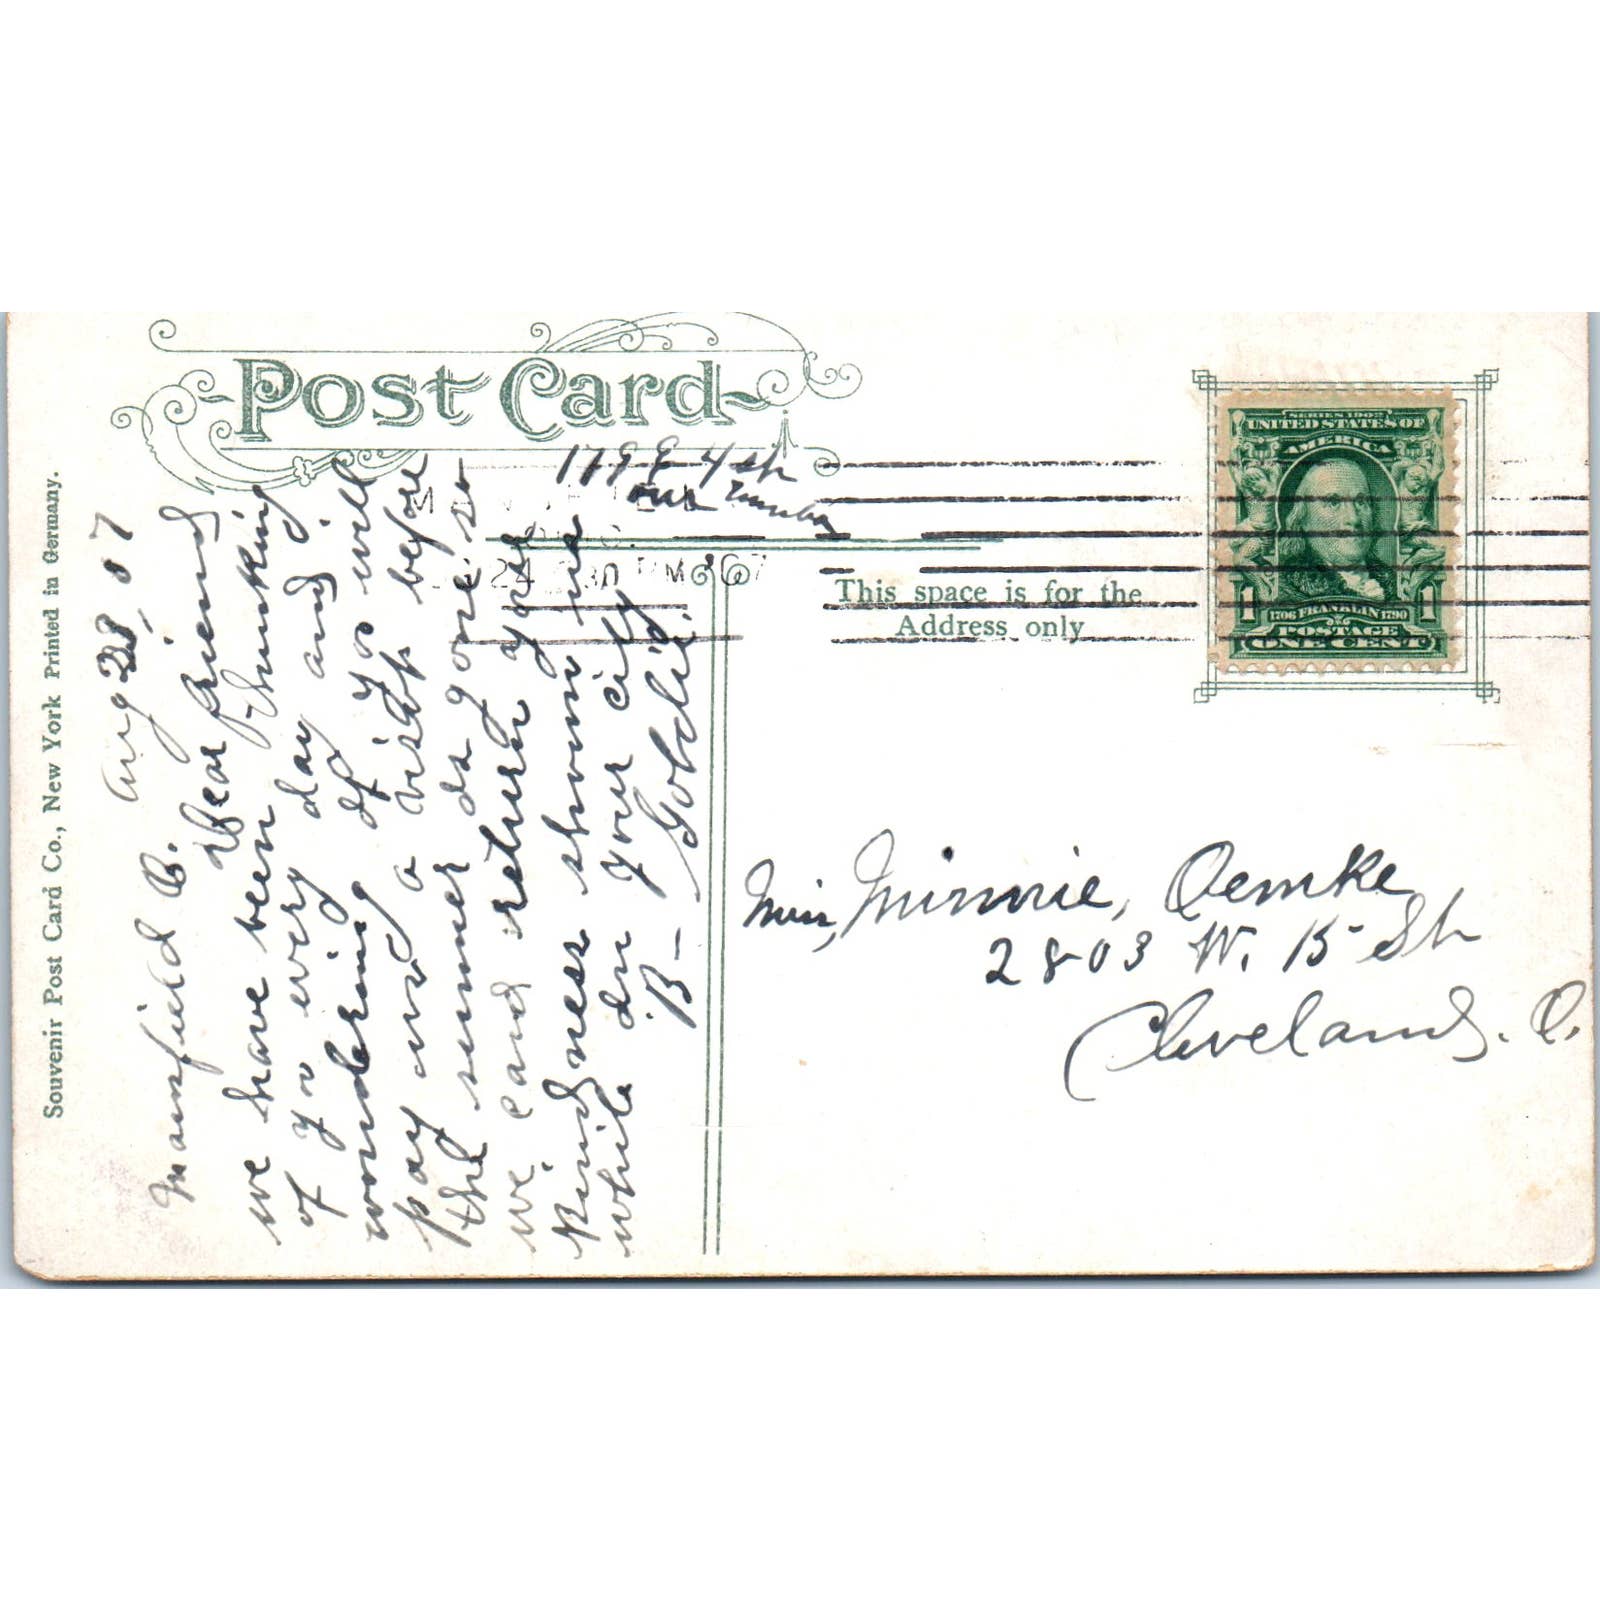 Post Card
119 E 4 St
our number
MANSFIELD
24 30 PM '07
This space is for the
Address only
SERIES 1902
UNITED STATES OF
AMERICA
1706 FRANKLIN 1790
1 1
POSTAGE
ONE CENT
Souvenir Post Card Co., New York Printed in Germany.
Mansfield O. Aug 23, 07
Dear friend
we have been thinking
of yo every day and
wondering if yo will
pay us a visit before
the summer is gone so
we can return your
kindness shown us
while in your city
B- Goldie.
Miss, Minnie, Oemke
2803 W. 15 St
Cleveland. O.